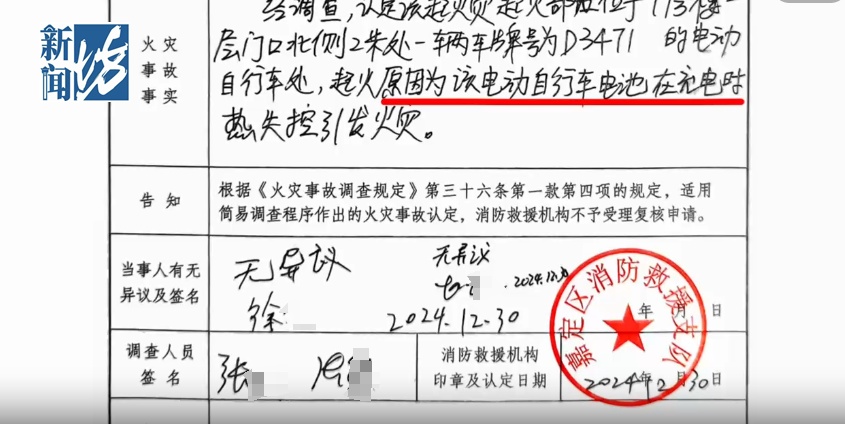 新闻坊
火灾
事故
事实
经调查，认定该起火灾起火部位位于113号楼一
层门口北侧2米处一辆车牌号为D3471 的电动
自行车处，起火原因为该电动自行车电池在充电时
热失控引发火灾。
告知
根据《火灾事故调查规定》第三十六条第一款第四项的规定，适用
简易调查程序作出的火灾事故认定，消防救援机构不予受理复核申请。
当事人有无
异议及签名
无异议
徐
2024.12.30
无异议
2024.12.30
年 月 日
调查人员
签名
张
消防救援机构
印章及认定日期
嘉定区消防救援支队
2024年12月30日